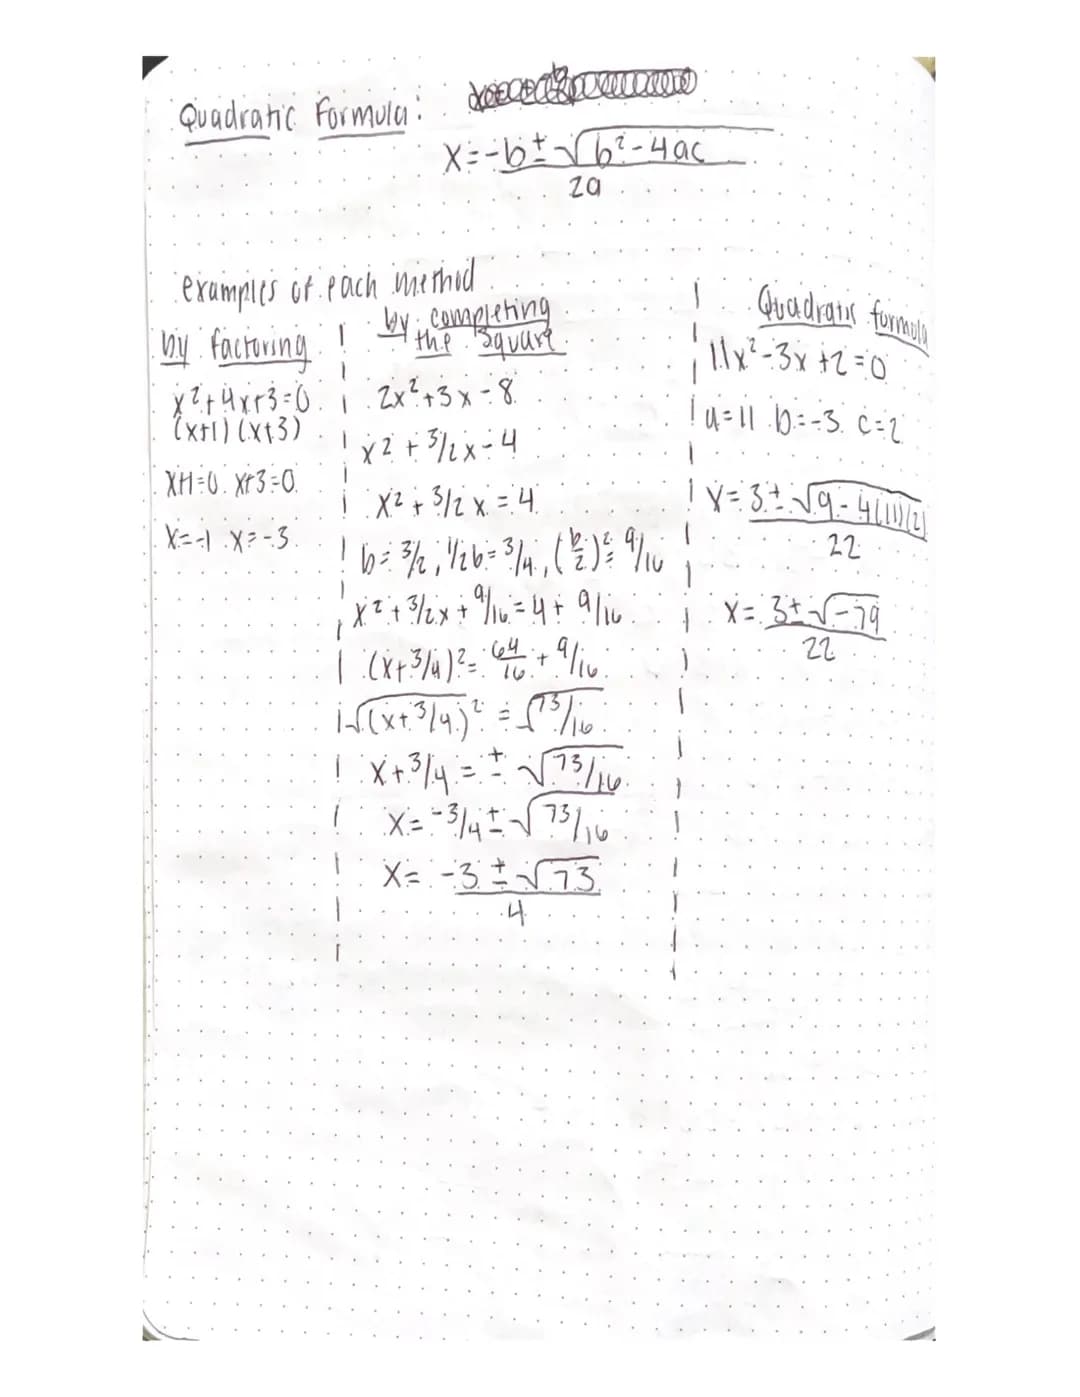 Quadratic Formula:
x=-b±√b²-4ac
2a
examples of each method
by factoring
x²+4x+3=0
(x+1)(x+3)
x+1=0 x+3=0
x=-1 x=-3
by completing
the square
2x²+3x-8
x²+3/2x-4
x²+3/2x=4
b=3/2, 1/2b=3/4, (b/2)²=9/16
x²+3/2x+9/16=4+9/16
(x+3/4)²=64/16+9/16
√(x+3/4)²=√73/16
x+3/4=±√73/16
x=-3/4±√73/16
x=-3±√73
4
Quadratic formula
11x²-3x+2=0
a=11 b=-3 c=2
x=3±√9-4(11)(2)
22
x=3±√-79
22